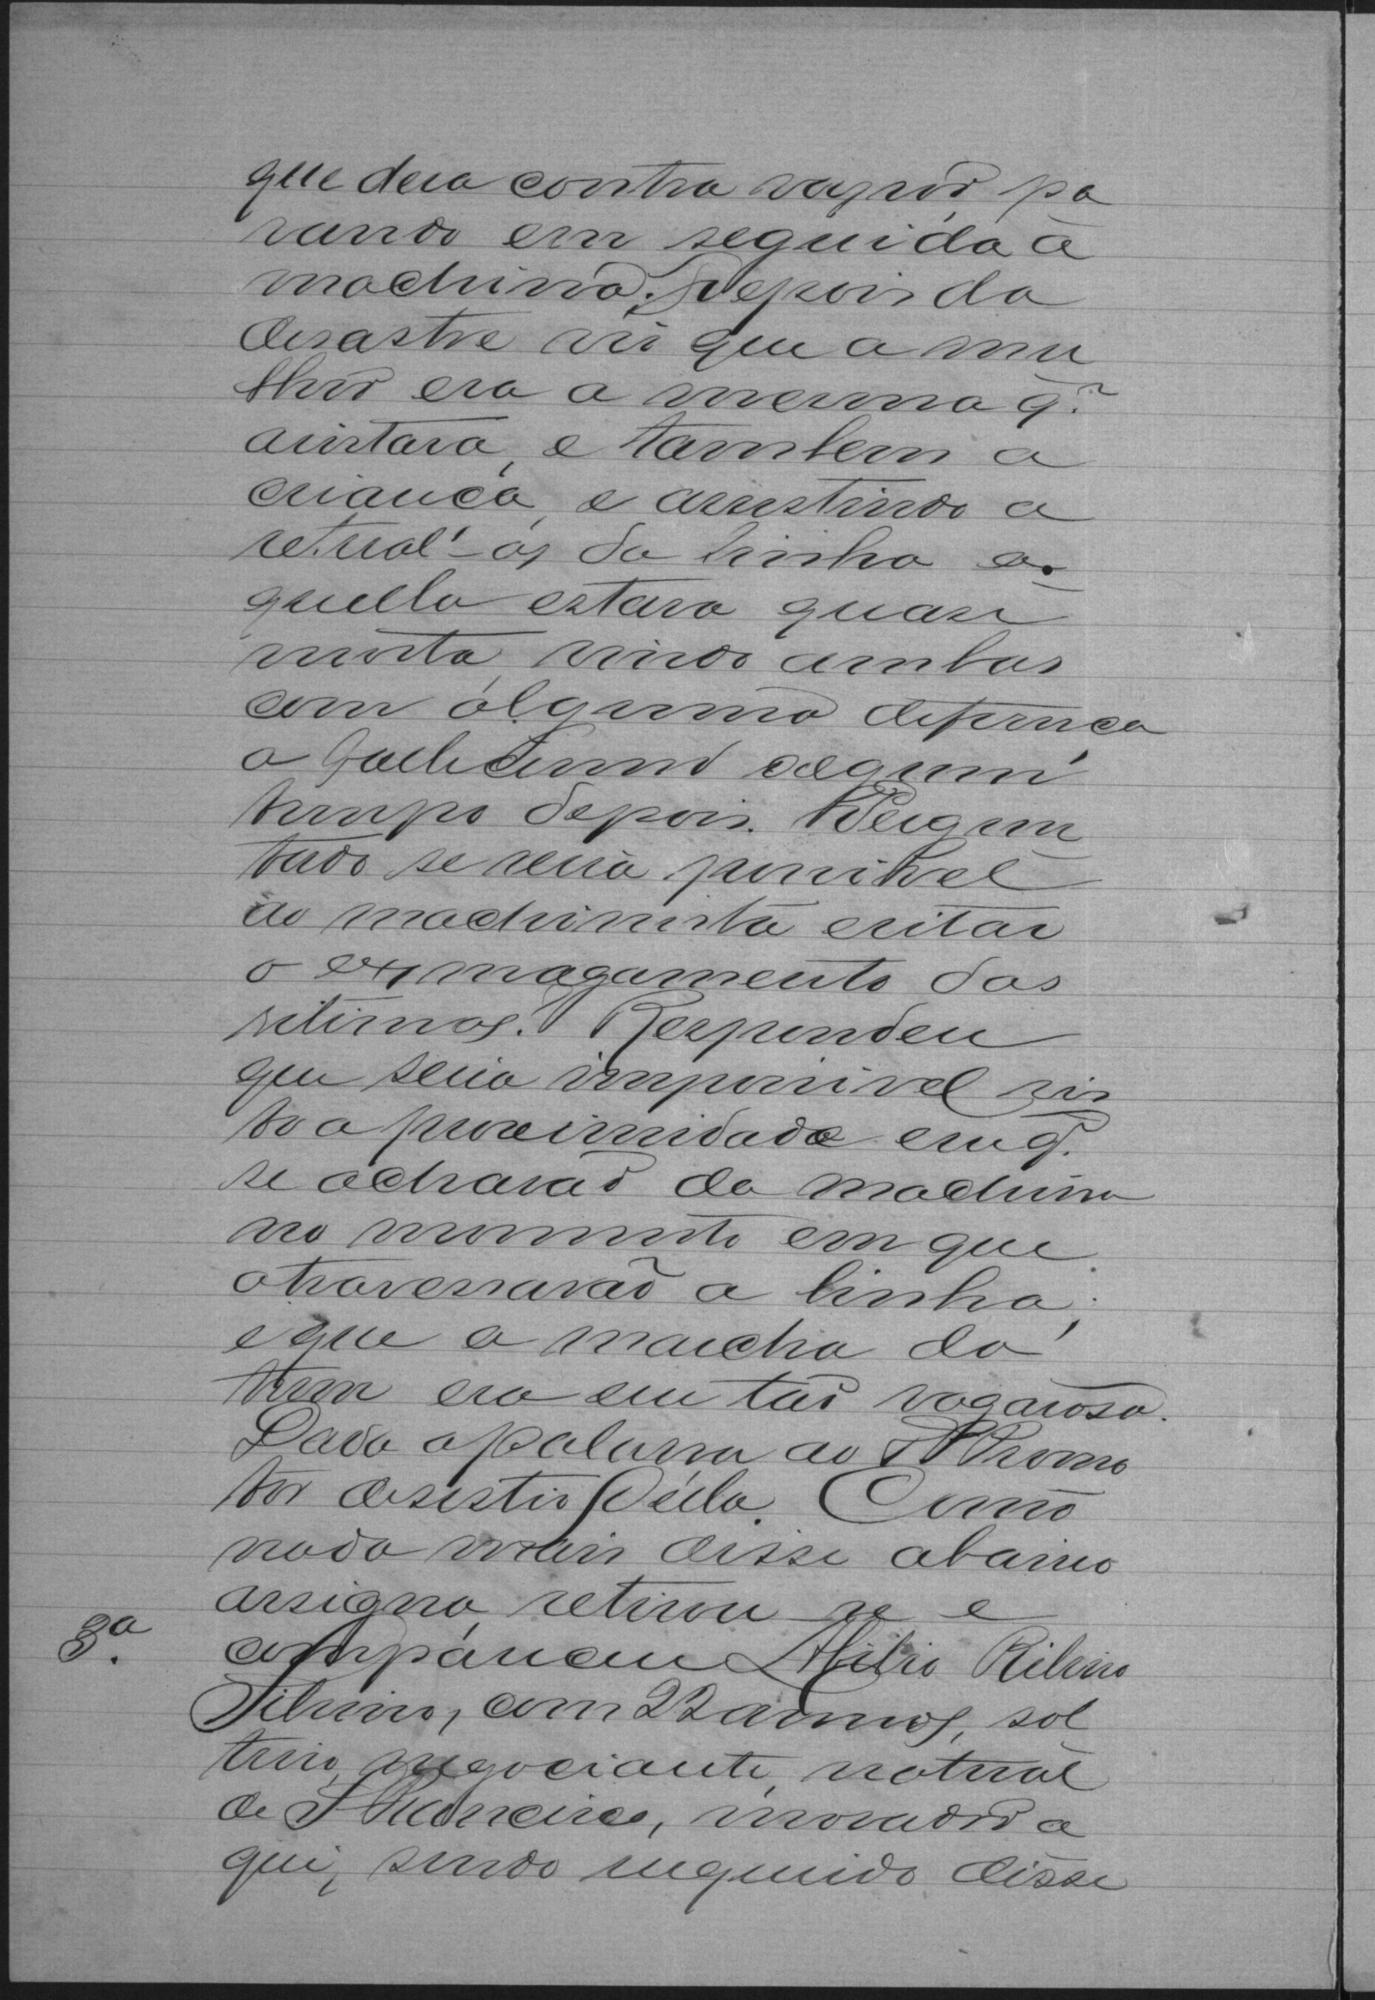 que dera contra vapor pa
rando em seguida a
machina. Depois do
desastre vio que a mu
lher era a mesma q.
avistara, e tambem a
criança, e assistindo a
retiral'-as da linha a-
quella estava quasi
morta, vindo ambas
com alguma differença
a fallecerem algum
tempo depois. Pergun
tado se seria possivel
ao machinista evitar
o esmagamento das
vitimas? Respondeu
que seria impossivel vis
to a proximidade em q.
se achavaõ da machina
no momento em que
atravessavaõ a linha;
e que a marcha do
trem era em taõ vagarosa.
Dada a palavra ao Promo
tor desistio d'ella. Como
nada mais disse abaixo
assigna, retirou-se e
3ª. compareceu Abilio Ribeiro
com 22 annos, sol
teiro, negociante, natural
de S Francisco, morador a
qui, sendo inquirido disse